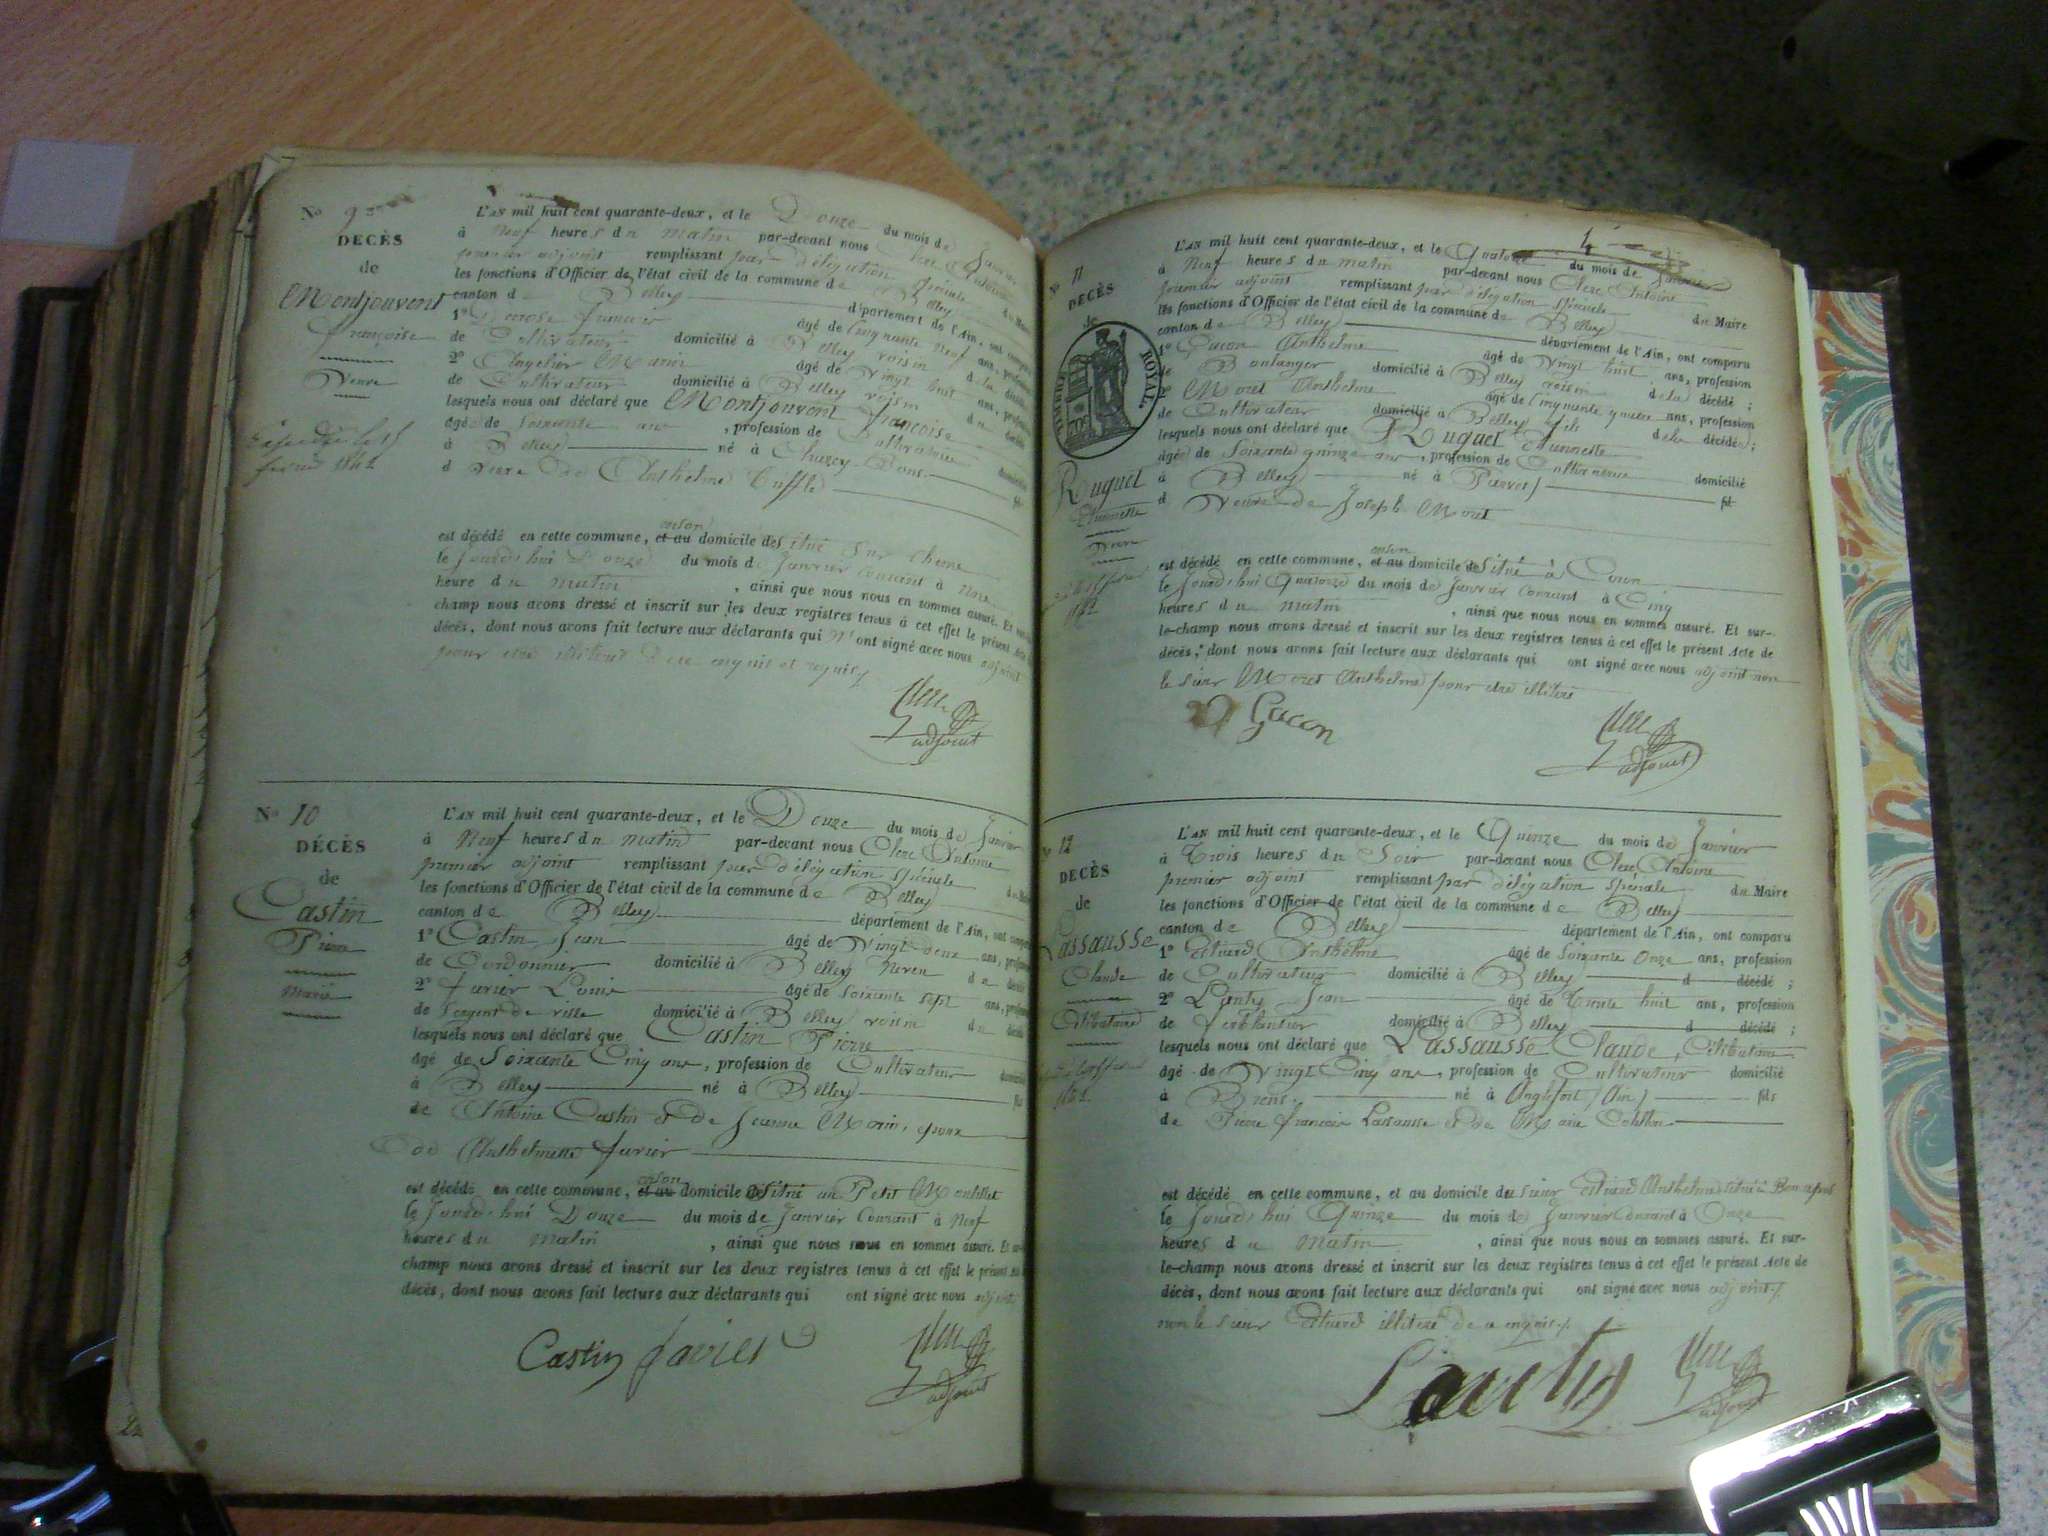 No 9
DECÈS
de
Montjouvent
françoise
Veuve
Expedié le 15
fevrier 1842
L'AN mil huit cent quarante-deux, et le Douze du mois de Janvier
à Neuf heures du matin par-devant nous Clerc Antoine
premier adjoint remplissant par délégation spéciale du Maire
les fonctions d'Officier de l'état civil de la commune de Belley
canton de Belley département de l'Ain, ont comparu
1º françois âgé de Cinquante Neuf ans, profession
de Cultivateur domicilié à Belley voisin de la décédée
2º Marin âgé de Vingt huit ans, profession
de Cultivateur domicilié à Belley voisin d décédé
lesquels nous ont déclaré que Montjouvent françoise
agée de soixante ans, profession de Cultivatrice domicilié
à Belley né à Chazey-Bons fil
d veuve de Anthelme
est décédé en cette commune, et au maison domicile de situé sur
le Jourd'hui Douze du mois de Janvier Courant à une
heure du matin, ainsi que nous nous en sommes assuré. Et sur-le
champ nous avons dressé et inscrit sur les deux registres tenus à cet effet le présent Acte
décès, dont nous avons fait lecture aux déclarants qui n'ont signé avec nous adjoint
pour être illitérés De ce enquis et requis
Clerc
adjoint
No 10
DÉCÈS
de
Castin
Pierre
Marié
L'AN mil huit cent quarante-deux, et le Douze du mois de Janvier
à Neuf heures du matin par-devant nous Clerc Antoine
premier adjoint remplissant par délégation spéciale du Maire
les fonctions d'Officier de l'état civil de la commune de Belley
canton de Belley département de l'Ain, ont comparu
1º Castin Jean âgé de Vingt deux ans, profession
de Cordonnier domicilié à Belley Neveu du décédé
2º favier Louis âgé de soixante sept ans, profession
de Sergent de ville domicilié à Belley voisin du décédé
lesquels nous ont déclaré que Castin Pierre
âgé de Soixante Cinq ans, profession de Cultivateur domicilié
à Belley né à Belley fil
de Antoine Castin et de Jeanne Marin, époux
de Anthelmette favier
est décédé en cette commune, et au maison domicile de situé au Petit Montillet
le Jourd'hui Douze du mois de Janvier Courant à Neuf
heures du matin, ainsi que nous nous en sommes assuré. Et sur-
champ nous avons dressé et inscrit sur les deux registres tenus à cet effet le présent Acte
décès, dont nous avons fait lecture aux déclarants qui ont signé avec nous adjoint
Castin favier
Clerc
adjoint
4
11
DECÈS
de
TIMBRE ROYAL
70 c
Ruguet
Etiennette
Veuve
1842
L'AN mil huit cent quarante-deux, et le Quatorze du mois de Janvier
à Neuf heures du matin par-devant nous Clerc Antoine
premier adjoint remplissant par délégation spéciale du Maire
les fonctions d'Officier de l'état civil de la commune de Belley
canton de Belley département de l'Ain, ont comparu
1º Gacon Anthelme âgé de Vingt huit ans, profession
de Boulanger domicilié à Belley voisin de la décédé;
2º Moret Anthelme âgé de Cinquante quatre ans, profession
de Cultivateur domicilié à Belley fils de la décédée;
lesquels nous ont déclaré que Ruguet Etiennette
âgée de Soixante quinze ans, profession de Cultivatrice domicilié
à Belley né à fil
d Veuve de Joseph Moret
est décédé en cette commune, et au maison domicile de situé à Coron
le Jourd'hui Quatorze du mois de Janvier Courant à Cinq
heures du matin, ainsi que nous nous en sommes assuré. Et sur-
le-champ nous avons dressé et inscrit sur les deux registres tenus à cet effet le présent Acte de
décès, dont nous avons fait lecture aux déclarants qui ont signé avec nous adjoint non
le sieur Moret Anthelme pour être illitéré
Gacon
Clerc
adjoint
12
DECÈS
de
Lassausse
Claude
Célibataire
L'AN mil huit cent quarante-deux, et le Quinze du mois de Janvier
à Trois heures du Soir par-devant nous Clerc Antoine
premier adjoint remplissant par délégation spéciale du Maire
les fonctions d'Officier de l'état civil de la commune de Belley
canton de Belley département de l'Ain, ont comparu
1º Anthelme âgé de Soixante Onze ans, profession
de Cultivateur domicilié à Belley d décédé;
2º Lanty Jean âgé de Trente huit ans, profession
de ferblantier domicilié à Belley d décédé;
lesquels nous ont déclaré que Lassausse Claude, Célibataire
âgé de Vingt Cinq ans, profession de Cultivateur domicilié
à Brens né à Anglefort (Ain) fils
de Pierre françois Lassausse et de Marie
est décédé en cette commune, et au domicile du sieur Anthelme situé à
le Jourd'hui Quinze du mois de Janvier Courant à Onze
heures du matin, ainsi que nous nous en sommes assuré. Et sur-
le-champ nous avons dressé et inscrit sur les deux registres tenus à cet effet le présent Acte de
décès, dont nous avons fait lecture aux déclarants qui ont signé avec nous adjoint
non le sieur illitéré de ce enquis
Lanty
Clerc
adjoint